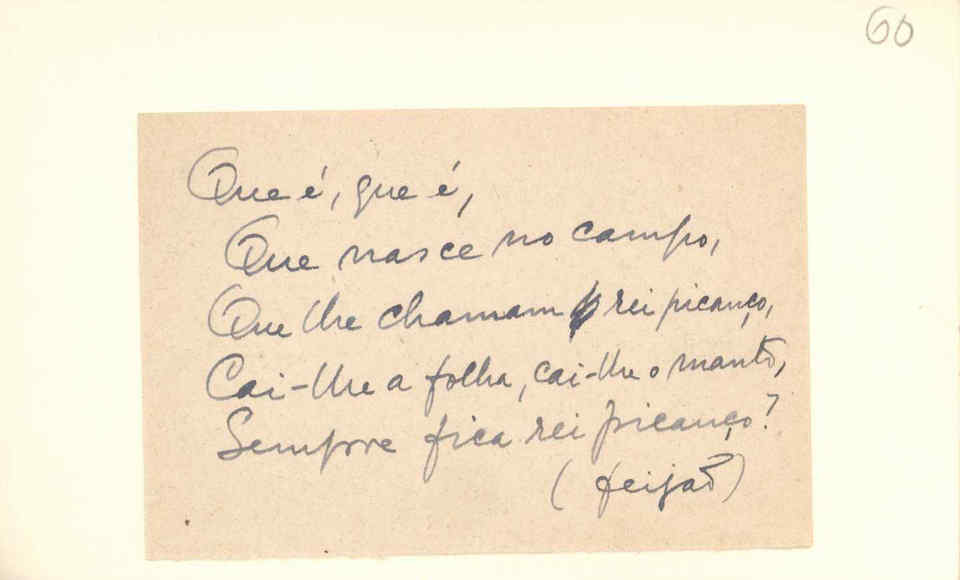 60
Que é, que é,
Que nasce no campo,
Que lhe chamam rei picanço,
Cai-lhe a folha, cai-lhe o manto,
Sempre fica rei picanço?
(feijão)